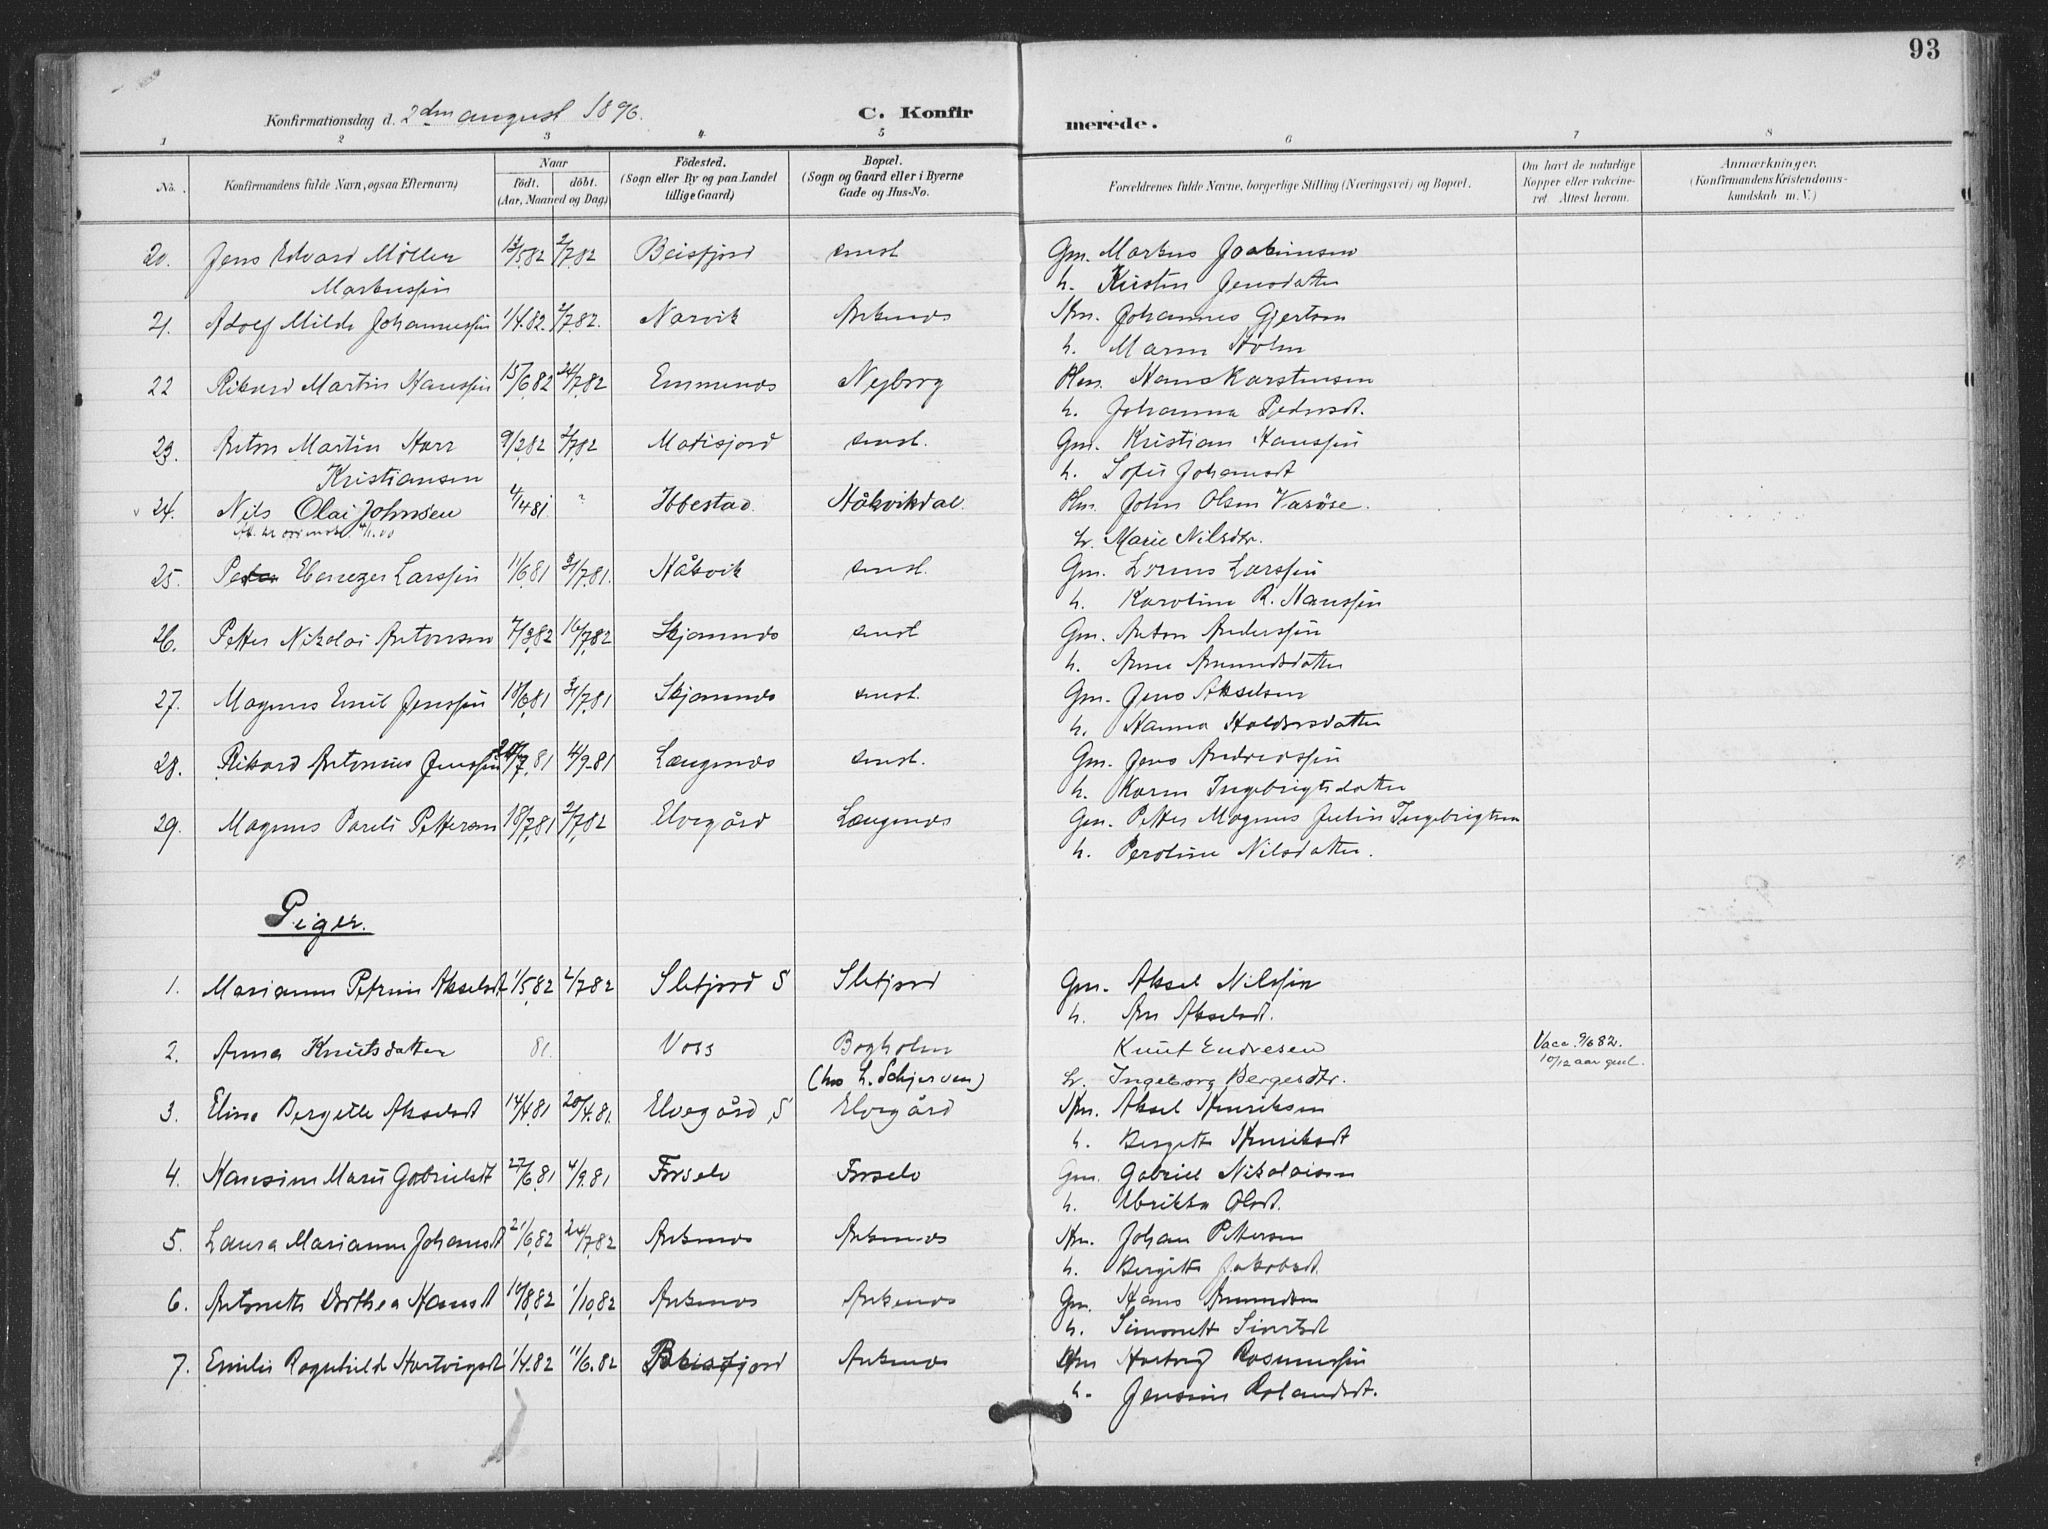 93
Konfirmationsdag d. 2den august 1896. C. Konfirmerede.
1 2 3 4 5 6 7 8
No. Konfirmandens fulde Navn, ogsaa Efternavn) Naar født. døbt. (Aar, Maaned og Dag) Födested. (Sogn eller By og paa Landet tillige Gaard) Bopæl. (Sogn og Gaard eller i Byerne Gade og Hus-No. Forældrenes fulde Navne, borgerlige Stilling (Næringsvei) og Bopæl. Om havt de naturlige Kopper eller vakcineret. Attest herom. Anmærkninger. (Konfirmandens Kristendomskundskab m. V.)
20. Jens Edvard Möller 13/5 82 2/7 82 Beisfjord smst Gm. Markus Joakimsen
Markussen h. Kirsten Jensdatter
21. Adolf Milde Johannessen 1/4.82. 2/7 82. Narvik Ankenes Johannes Gjertsen
h. Maren Holm
22 Rikard Martin Hanssen 15/6 82 24/7 82 Emmenes Nyborg Hans Karstensen
h. Johanna Pedersdt.
23. Anton Martin Harr 9/2 82 2/7 82 Gm. Kristian Hanssen smst.
Kristiansen h. Sofie Johansdt
24. Nils Olai Johnsen 4/4 81 " Ibbestad. Håkvikdal. John Olsen Varöse.
h. Marie Nilsdtr.
25. Peder Ebenezer Larssen 11/6 81 31/7.81. Håkvik smst. Gm. Larssen
h. Karoline R. Hanssen
26. Petter Nikolai Antonsen 7/3 82 16/7 82 Skjomnes smst Gm. Anton Anderssen
h. Anne Amundsdatter
27. Magnus Emil Jenssen 18/6 81 31/7 81 Skjomnes smst. Gm. Jens Akselsen
h. Hanna Haldorsdatter
28. Rikard Antonius Jenssen 20/7.81 4/9-81 Længenes smst. Gm. Jens Andreassen
h. Karen Ingebrigtsdatter
29. Magnus Pareli Pettersen 18/7 81 2/7 82 Elvegård Længenes Gm. Petter Magnus Julin Ingebrigtsen
h. Peroline Nilsdatter.
Piger.
1. Marianne Petrine Akselsdt 1/5 82 2/7 82 Sletjord S Sletjord Gm. Aksel Nilssen
h. An Akselsdt.
2. Anna Knutsdatter 81. Voss Bogholm Knut Endresen Vacc. 9/6 82.
(hos L. Schjerven) h. Ingeborg Bergesdtr. 10/12 aar gml.
3. Elina Bergette Akselsdt 14/4 81 20/4.81. Elvegård S Elvegård Aksel Henriksen
h. Bergette Henriksdt
4. Hansine Marie Gabrielsdt 27/6 81 4/9.81 Forselv Forselv Gm. Gabriel Nikolaisen
h. Ulrikka Olsdt.
5. Laura Marianne Johansdt 21/6 82 24/7 82 Ankenes Ankenes Johan Pettersen
h. Bergitte Jakobsdt.
6. Antonette Dorthea Hansdt 10/8 82 1/10 82 Ankenes Ankenes Gm. Hans Amundsen
h. Simonette Sivertsdt
7. Emilie Ragnhild Hartvigsdt 1/4.82 11/6.82 Beisfjord Ankenes Hartvig Rasmussen
h. Jensine Rolandsdt.